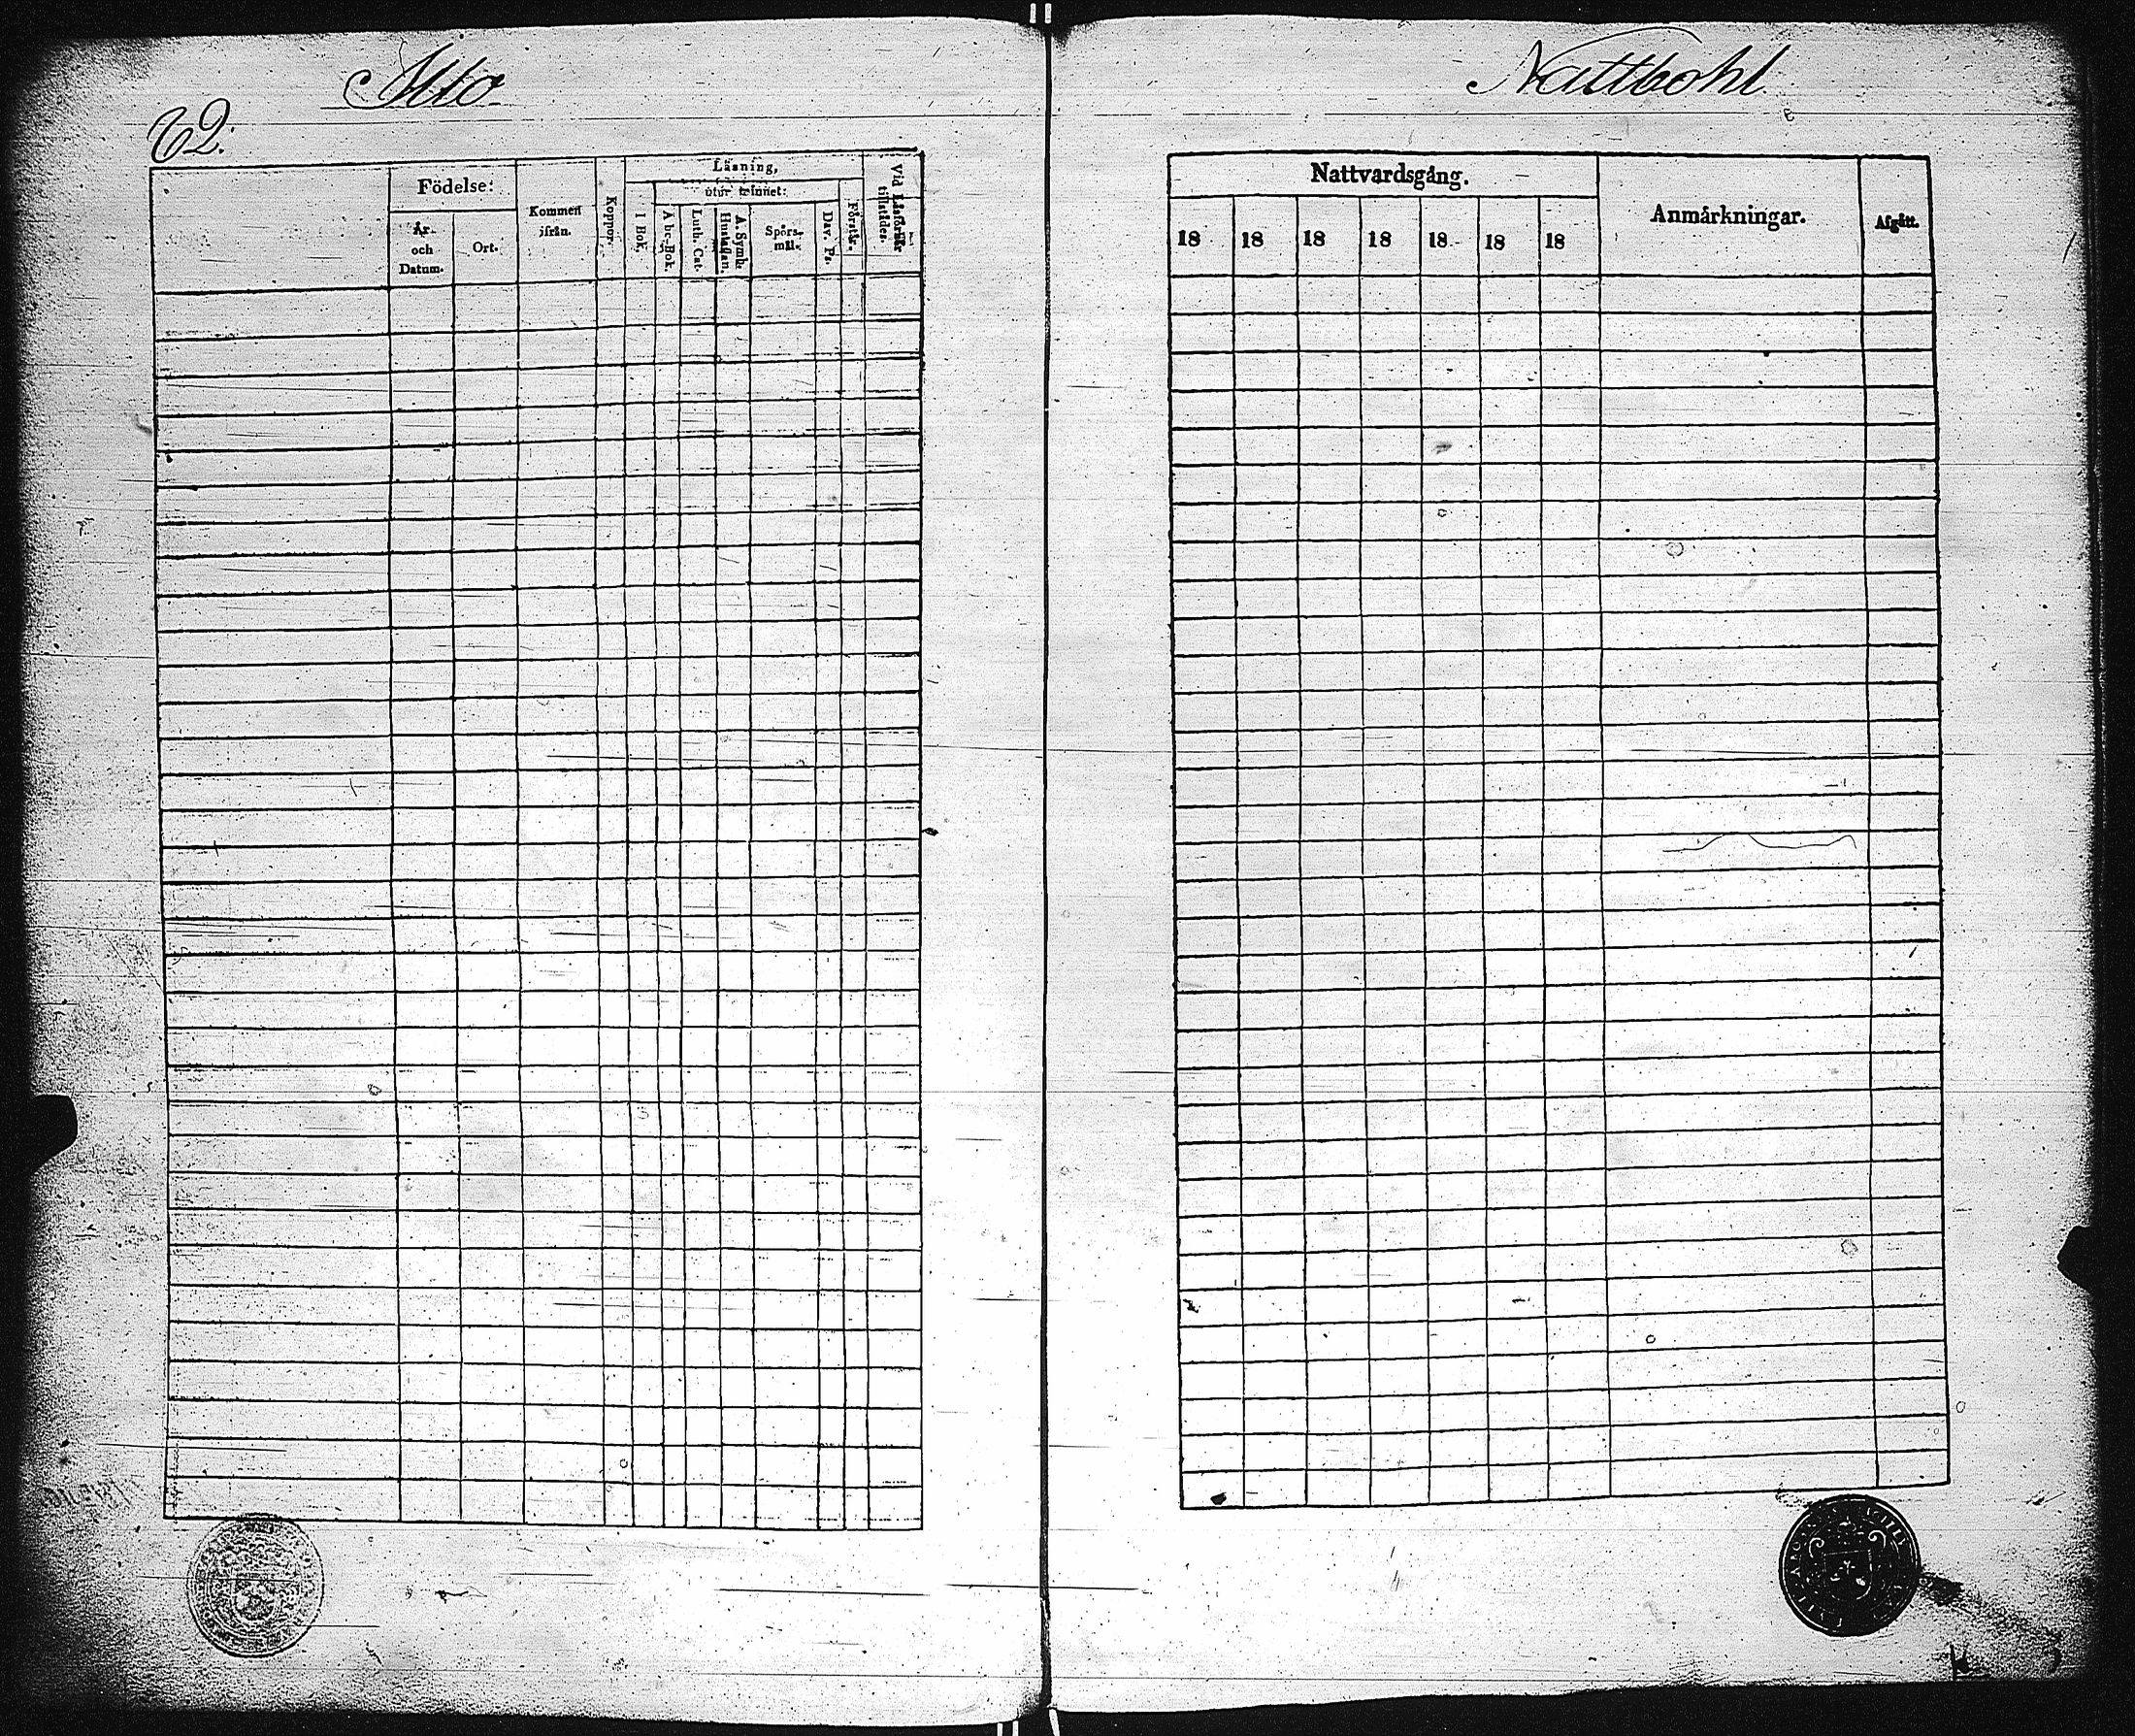 62.
Atto
Födelse:
År
och
Datum.
Ort.
Kommen
ifrån.
Koppor.
Läsning,
I Bok.
utur minnet:
A bc-Bok.
Luth. Cat.
A. Symb.
Hustaflan.
Spörs-
mål.
Dav. Ps.
Förstår.
Vid Läsförhör
tillstädes.
Nattbohl
Nattvardsgång.
18 18 18 18 18 18 18
Anmärkningar.
Afgått.